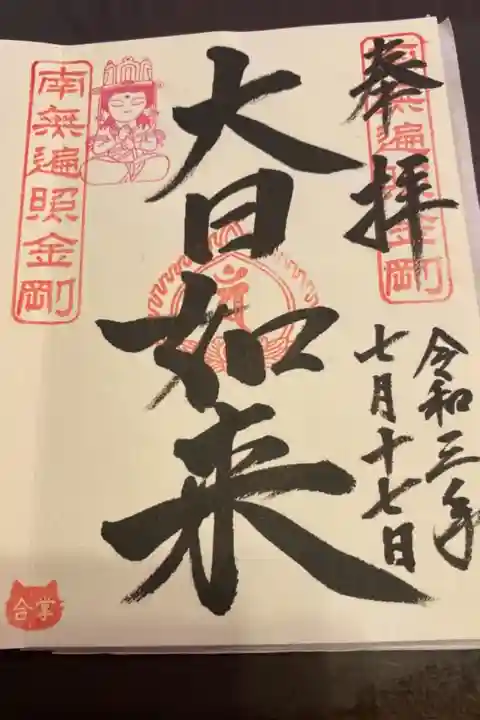 奉拝
南無遍照金剛
令和三年
七月十七日
大日如来
南無遍照金剛
合掌